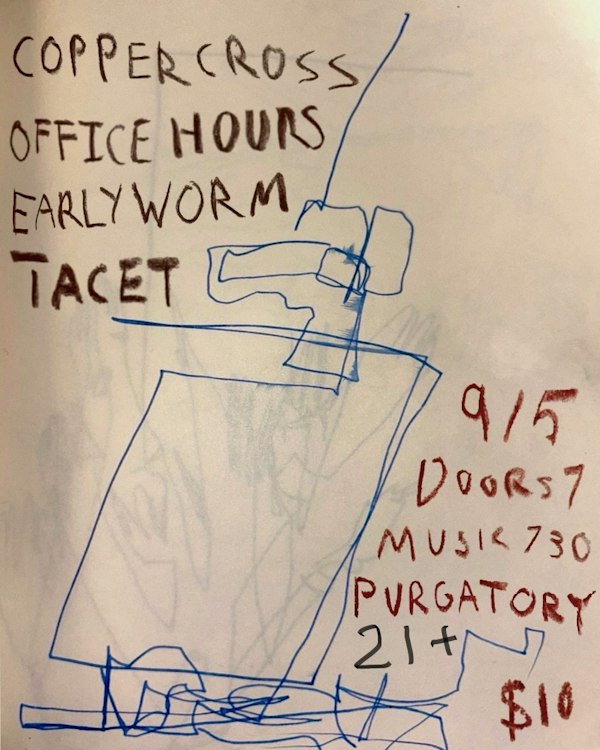 COPPERCROSS
OFFICE HOURS
EARLYWORM
TACET
9/5
DOORS 7
MUSIC 730
PURGATORY
21+
$10